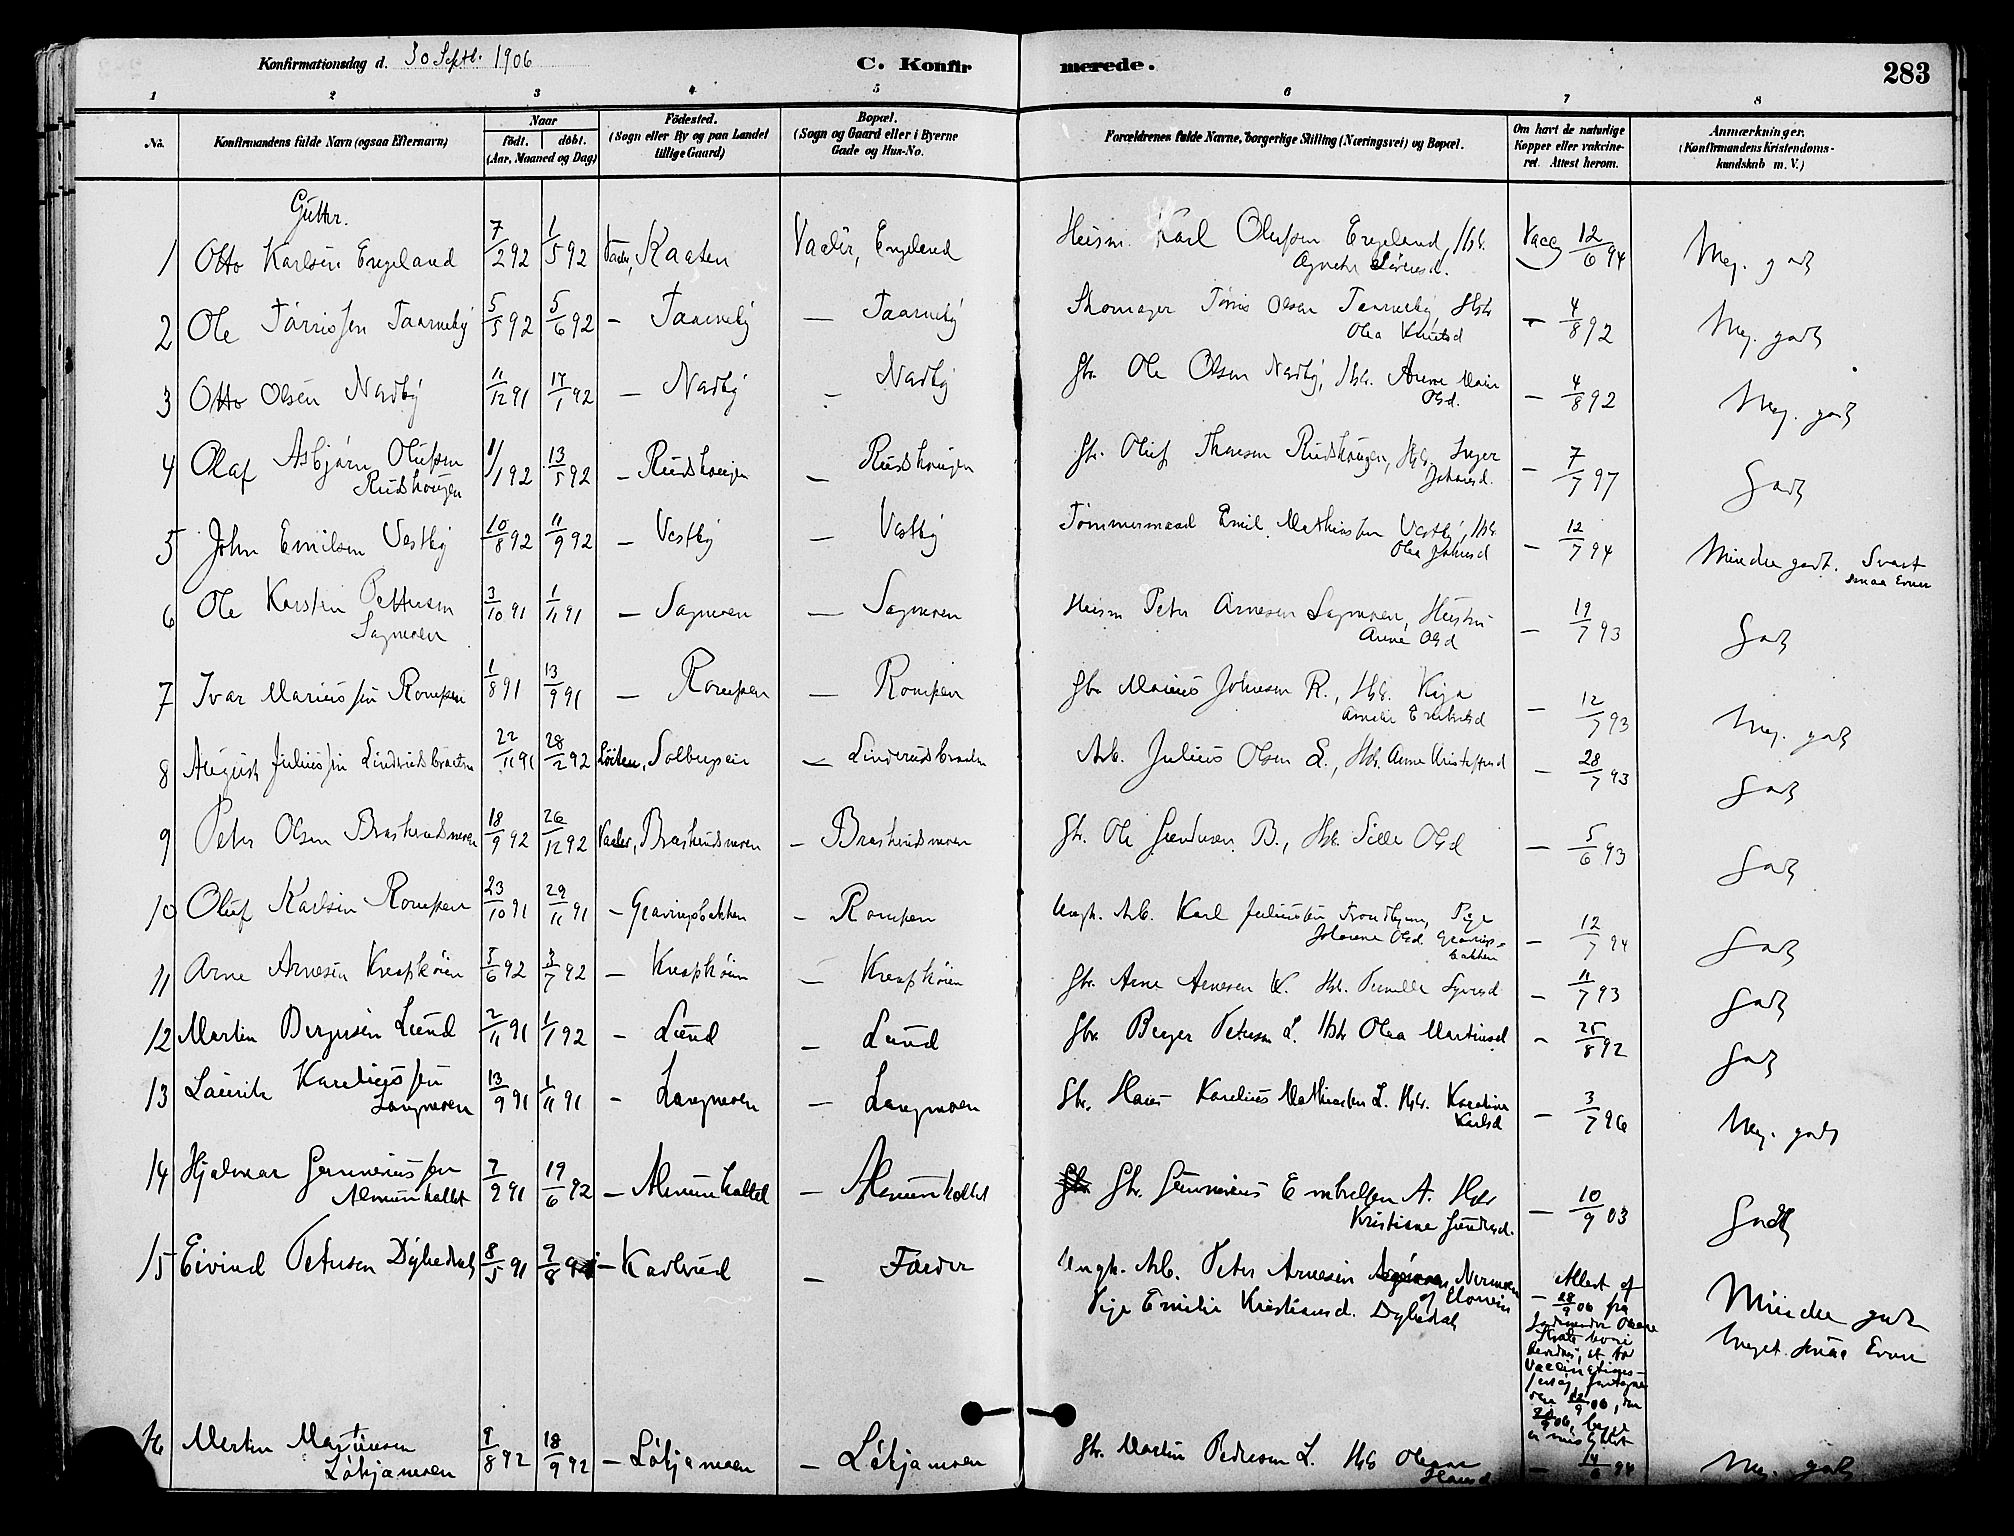 Konfirmationsdag d. 30 Septb. 1906
C. Konfirmerede.
283
1 2 3 4 5 6 7 8
No. Konfirmandens fulde Navn (ogsaa Efternavn) Naar født. døbt. (Aar, Maaned og Dag) Fødested. (Sogn eller By og paa Landet tillige Gaard) Bopæl. (Sogn og Gaard eller i Byerne Gade og Hus-No. Forældrenes fulde Navne, borgerlige Stilling (Næringsvei) og Bopæl. Om havt de naturlige Kopper eller vakcineret. Attest herom. Anmærkninger. (Konfirmandens Kristendomskundskab m. V.)
Gutter.
1 Otto Karlsen Engeland 7/2 92 1/5 92 Vaaler, Kaaten Vaaler, Engeland Husm. Karl Olufsen Engeland, Hst. Vacc 12/6 94 Meg. godt
Agnethe Sörensd.
2 Ole Tørrissen Taarneby 5/5 92 5/6 92 — Taarneby — Taarneby Skomager Tørris Olsen Taarneby, Hst. — 4/8 92 Meg. godt
Olea Knutsd
3 Otto Olsen Nordby 11/12 91 17/1 92 — Nordby — Nordby Gbr. Ole Olsen Nordby, Hst. Anne Marie — 4/8 92 Meg. godt
Olsd.
4 Olaf Asbjørn Olufsen 1/1 92 13/5 92 — Rudshaugen — Rudshaugen Gbr. Oluf Thoresen Rudshaugen, Hst. Inger — 7/7 97 Godt
Rudshaugen Johansd.
5 John Emilsen Vestby 10/8 92 11/9 92 — Vestby — Vestby Tømmermand Emil Mathiassen Vestby, Hst. — 12/7 94 Mindre godt. Svært
Olea Johnsd smaa Evner
6 Ole Karsten Pettersen 3/10 91 1/11 91 — Sagmoen — Sagmoen Husm Peter Arnesen Sagmoen, Hustru — 19/7 93 Godt
Sagmoen Anne Olsd
7 Ivar Mariussen Rompen 1/8 91 13/9 91 — Rompen — Rompen Gbr Marius Johnesen R., Hst. — 12/7 93 Meg. godt
Amalie Embretsd
8 August Juliussen Linderudsbraaten 22/11 91 28/2 92 Löiten, Solbergseie — Linderudsbraaten Arb. Julius Olsen L., Hst. Anne Kristoffersd — 28/7 93 Godt
9 Peter Olsen Braskerudsmoen 18/9 92 26/12 92 Vaaler, Braskerudsmoen — Braskerudsmoen Gbr. Ole Gundersen B., Hst. Sille Olsd — 5/6 93 Godt
10 Oluf Karlsen Rompen 23/10 91 29/11 91 — Gravingsbakken — Rompen Ungk. Arb. Karl Juliussen Trondhjem, Pige — 12/7 94 Godt
Johanne Olsd. Gravings-
bakken
11 Arne Arnesen Knapkøien 5/6 92 3/7 92 — Knapkøien — Knapkøien Gbr. Arne Arnesen K. Hst. Pernille Syversd — 11/7 93 Godt
12 Martin Bergersen Lund 2/11 91 1/1 92 — Lund — Lund Gbr. Berger Petersen L. Hst Olea Martinsd — 25/8 92 Godt
13 Laurits Kareliussen 13/9 91 1/11 91 — Langmoen — Langmoen Gbr. Hans Karelius Mathiassen L. Hst. Karoline — 3/7 96 Meg. godt
Langmoen Karlsd
14 Hjalmar Gunneriussen 7/9 91 19/6 92 — Almunkollet — Almunkollet Gbr. Gunnerius Embretsen A. Hst — 10/9 03 Godt
Almunkollet Kristiane Gundersd.
15 Eivind Petersen Dybedal 8/5 91 9/8 91 — Karlsrud — Førder Ungk. Arb. Peter Arnesen Nermoen Attest af Mindre godt
af Elverum — 28/9 06 fra
Pige Emilie Kristiansd. Dybedal Jordmoder meget smaa Evner
at to
Vaccinations-
forsøg foretagne
den 12/9 06, den
er mislykket
16 Martin Martinsen 9/8 92 18/9 92 — Løkjamoen — Løkjamoen Gbr. Martin Pedersen L. Hst Oleane — 14/6 94 Meg. godt
Løkjamoen Hansd